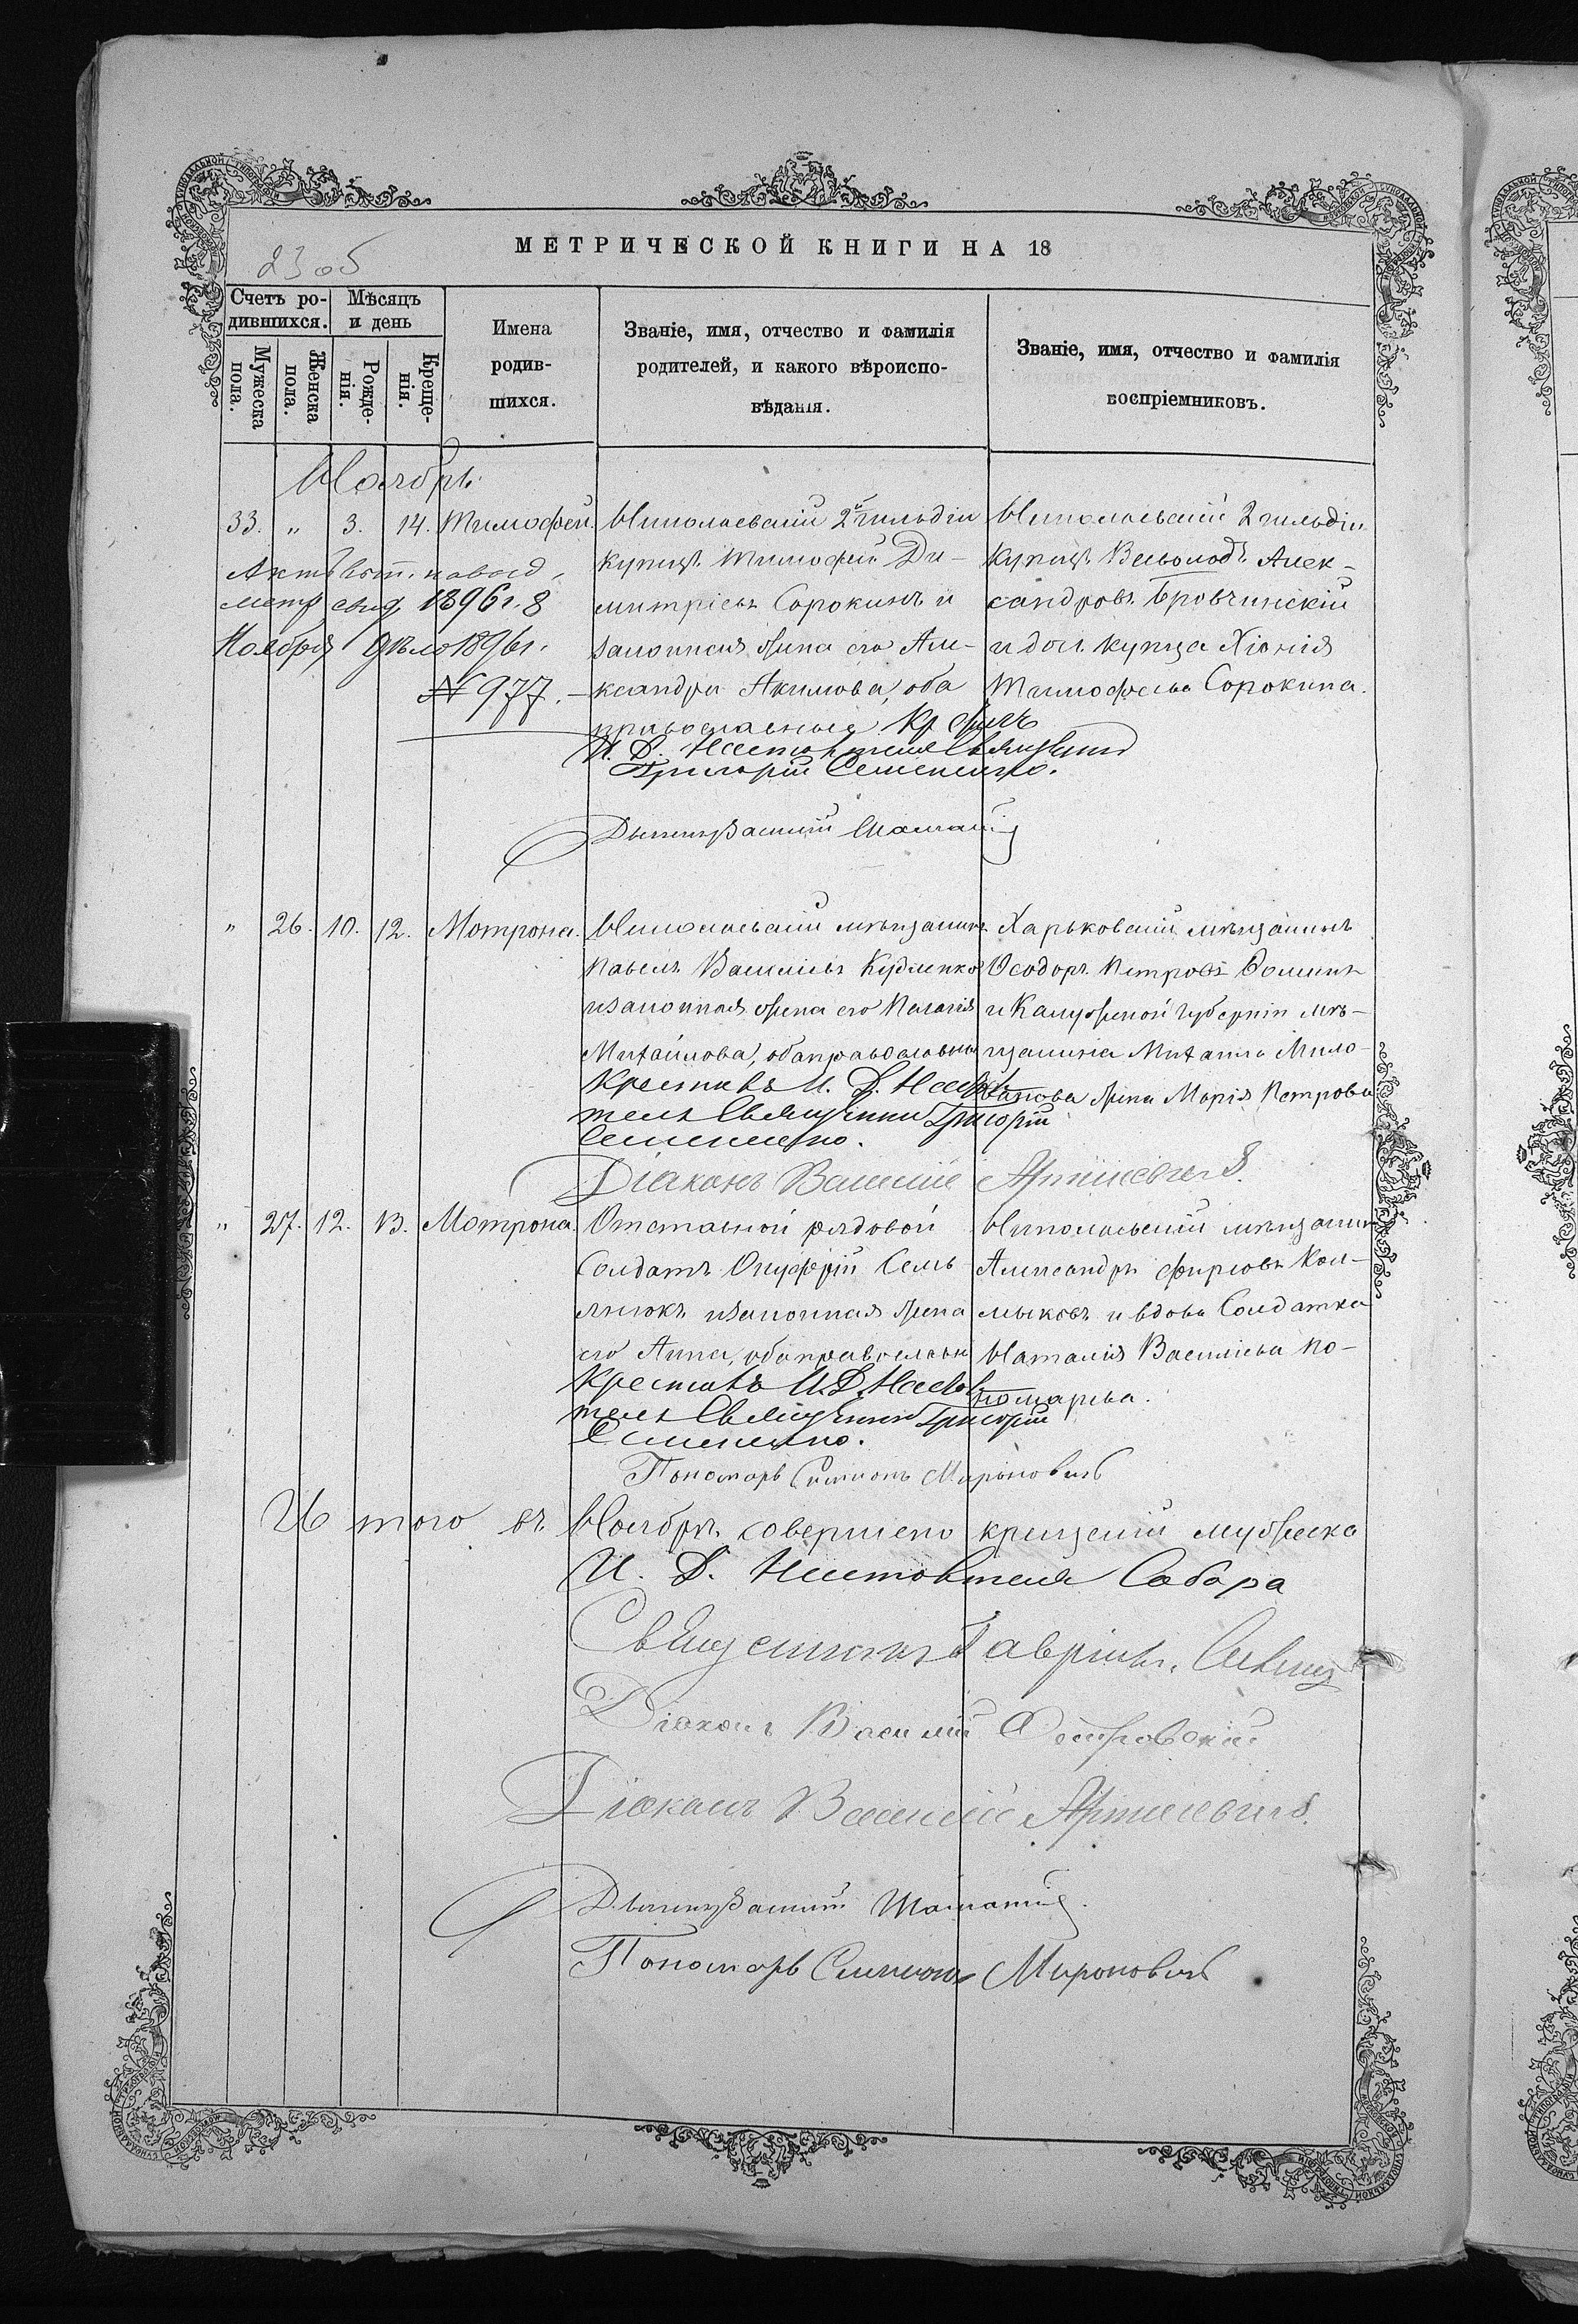 МЕТРИЧЕСКОЙ КНИГИ НА 18
23 об
Счетъ ро-
дившихся.
Мѣсяцъ
и день
Мужеска
пола.
Женска
пола.
Рожде-
нія.
Креще-
нія.
Имена
родив-
шихся.
Званіе, имя, отчество и фамилія
родителей, и какого вѣроиспо-
вѣданія.
Званіе, имя, отчество и фамилія
воспріемниковъ.
Ноябрь
33. " 3. 14. Тимофей.
метр свид. 1896 г. 8
Ноября дѣло 1896 г.
№ 977.
Николаевскій 2й гильдіи
купецъ Тимофей Ди-
митріевъ Сорокинъ и
законная жена его Але-
ксандра Акимова, оба
православные Кр
И. Д. Настоятеля Священникъ
Григорій Семененко.
Николаевскій 2 гильдіи
купецъ Всеволодъ Алек-
сандровъ Бровчинскій
и дочь купца Хіонія
Тимофеева Сорокина.
" 26. 10. 12. Мотрона.
Николаевскій мѣщанинъ
Павелъ Васильевъ
и законная жена его Пелагія
Михайлова, оба православные
Крестилъ И. Д. Настоя-
теля Священникъ Григорій
Семененко.
Діаконъ Василій
Харьковскій мѣщанинъ
Ѳеодоръ Петровъ Ѳоминъ
и Калужской губерніи мѣ-
щанина Михаила Мило-
ванова жена Марія Петрова
" 27. 12. 13. Мотрона.
Отставной рядовой
Солдатъ Онуфрій Семь
янюкъ и законная жена
его Анна, оба православны
Крестилъ И. Д. Настоя-
теля Священникъ Григорій
Семененко.
Пономарь Симеонъ Мироновичъ
Николаевскій мѣщанинъ
Александръ Фирсовъ Кол-
мыковъ и вдова Солдатка
Наталія Васильева По-
номарева.
И того въ Ноябрѣ совершено крещеній мужеска
И. Д. Настоятеля Собора
Священникъ Гавріилъ
Діаконъ Василій Островскій
Діаконъ Василій
Пономарь Симеонъ Мироновичъ